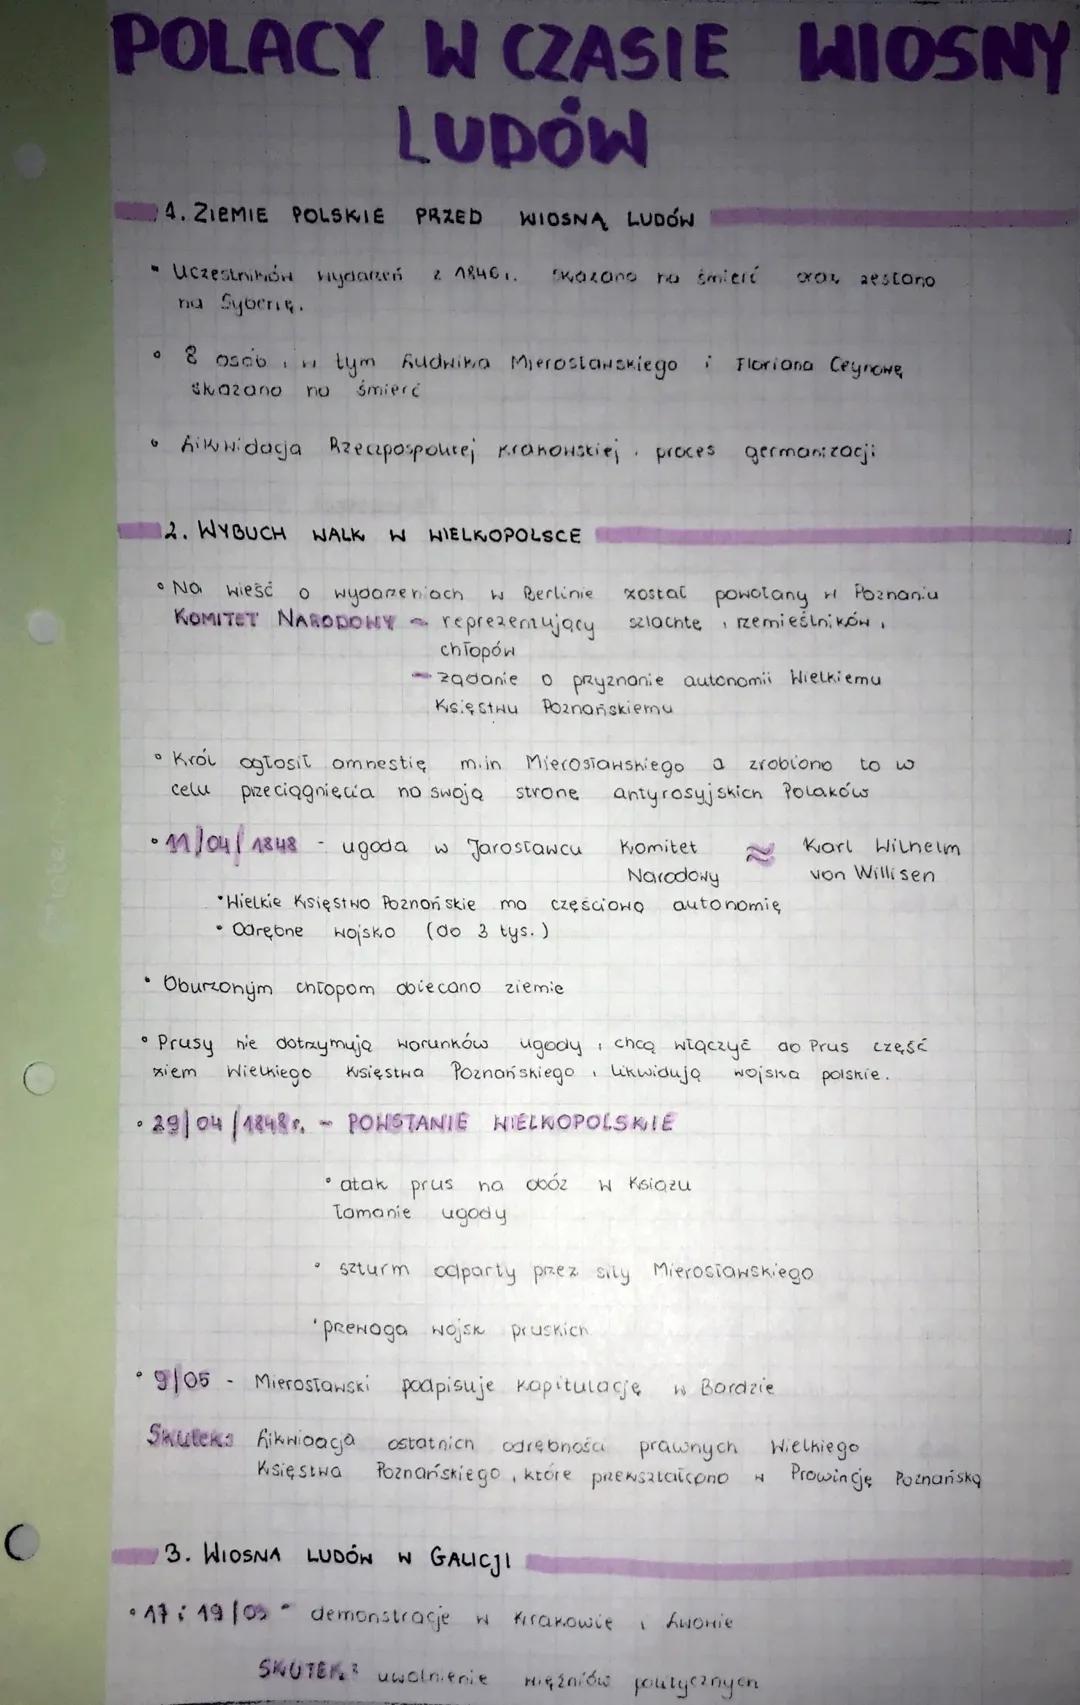 POLACY W CZASIE WIOSNY
LUDÓW
1. ZIEMIE POLSKIE PRZED WIOSNĄ LUDÓW
• Uczestników wydarzeń z 1846r. skazano na śmierć oraz zesłano
na Syberię.
• 8 osób, w tym Ludwika Mierosławskiego i Floriana Ceynowę
skazano na śmierć
• Likwidacja Rzeczpospolitej Krakowskiej, proces germanizacji
2. WYBUCH WALK W WIELKOPOLSCE
• Na wieść o wydarzeniach w Berlinie został powołany w Poznaniu
KOMITET NARODOWY - reprezentujący szlachtę, rzemieślników,
chłopów
- żądanie o przyznanie autonomii Wielkiemu
Księstwu Poznańskiemu
• Król ogłosił amnestię m.in Mierosławskiego a zrobiono to w
celu przeciągnięcia na swoją stronę antyrosyjskich Polaków
• 11/04/1848 - ugoda w Jarosławcu Komitet ≈ Karl Wilhelm
Narodowy von Willisen
• Wielkie Księstwo Poznańskie ma częściową autonomię
• Odrębne wojsko (do 3 tys.)
• Oburzonym chłopom obiecano ziemie
• Prusy nie dotrzymują warunków ugody, chcą włączyć do Prus część
ziem Wielkiego Księstwa Poznańskiego, likwidują wojska polskie.
• 29/04/1848r. - POWSTANIE WIELKOPOLSKIE
• atak prus na obóz w Książu
łamanie ugody
• szturm odparty przez siły Mierosławskiego
• przewaga wojsk pruskich
• 9/05 - Mierosławski podpisuje kapitulację w Bardzie
Skutek: Likwidacja ostatnich odrębności prawnych Wielkiego
Księstwa Poznańskiego, które przekształcono w Prowincję Poznańską
3. WIOSNA LUDÓW W GALICJI
• 17 i 19/03 - demonstracje w Krakowie i Lwowie
SKUTEK: uwolnienie więźniów politycznych